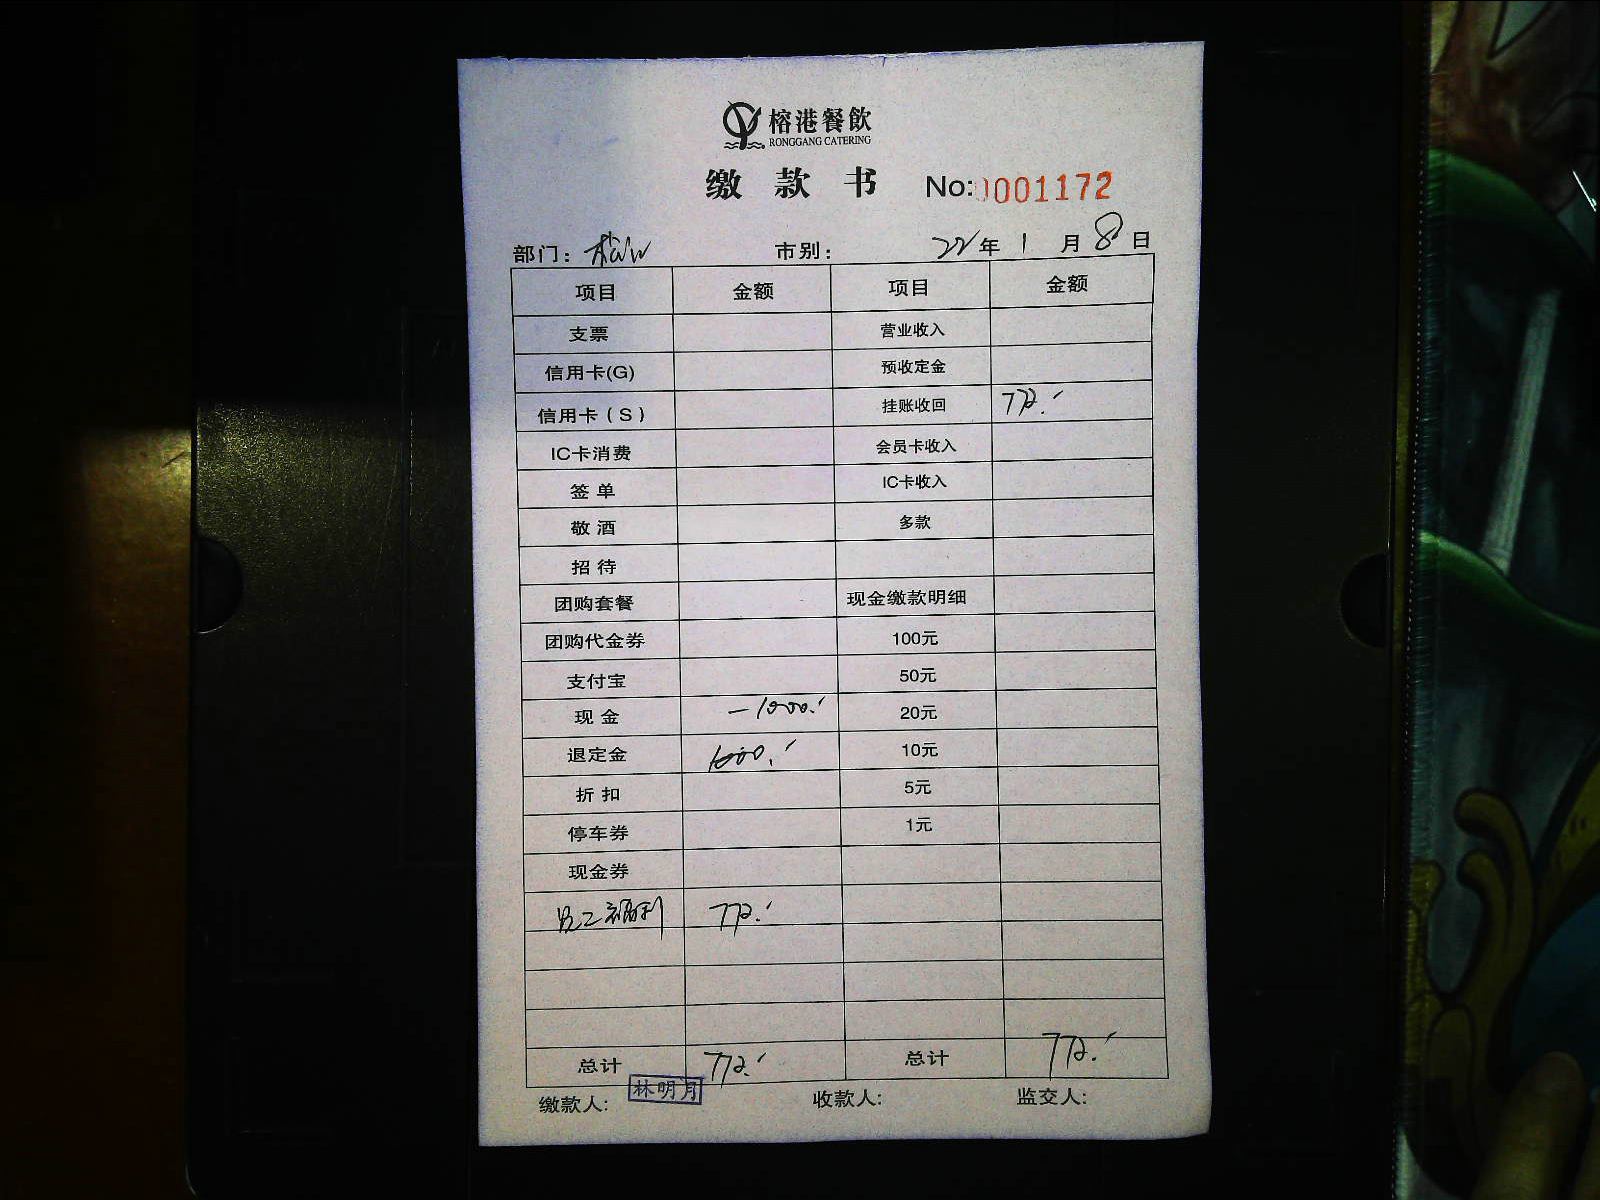 榕港餐飲
RONGGANG CATERING
缴款书 No:0001172
部门: 市别: 22年1月8日
项目 金额 项目 金额
支票 营业收入
信用卡(G) 预收定金
信用卡(S) 挂账收回 772.-
IC卡消费 会员卡收入
签单 IC卡收入
敬酒 多款
招待
团购套餐 现金缴款明细
团购代金券 100元
支付宝 50元
现金 -1000.- 20元
退定金 1000.- 10元
折扣 5元
停车券 1元
现金券
员工福利 772.-
总计 772.- 总计 772.-
缴款人: 林明月 收款人: 监交人: